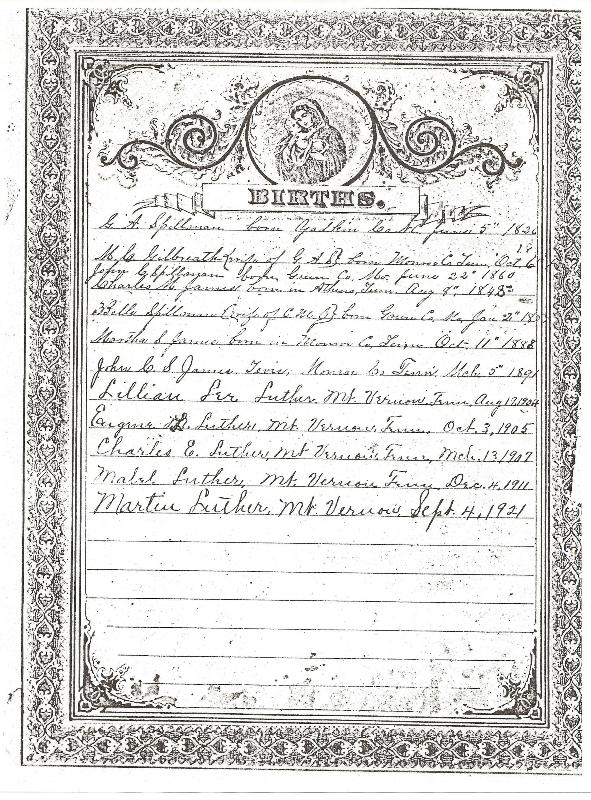 BIRTHS.
G. A. Spillman born Yadkin Co NC June 5" 1826
18
M. C. Gilbreath (wife of G A S) born Monroe Co Tenn, Oct 6
John G Spillman born Green Co, Mo. June 22" 1860
Charles M. James born in Athens, Tenn Aug 8", 1848
Belle Spillman (wife of C. M. J) born Green Co, Mo, Jan 2" 18
Martha S James, born in Monroe Co, Tenn Oct 11" 1888
John C. S James. Monroe Co Tenn, Mch. 5" 1891
Lillian Lee Luther. Mt. Vernon Tenn, Aug 17, 1904
Eugene Luther, Mt. Vernon, Tenn. Oct. 3, 1905
Charles E. Luther, Mt Vernon, Tenn, Mch. 13, 1907
Mabel Luther, Mt. Vernon Tenn Dec. 4, 1911
Martin Luther, Mt. Vernon, Sept. 4, 1921